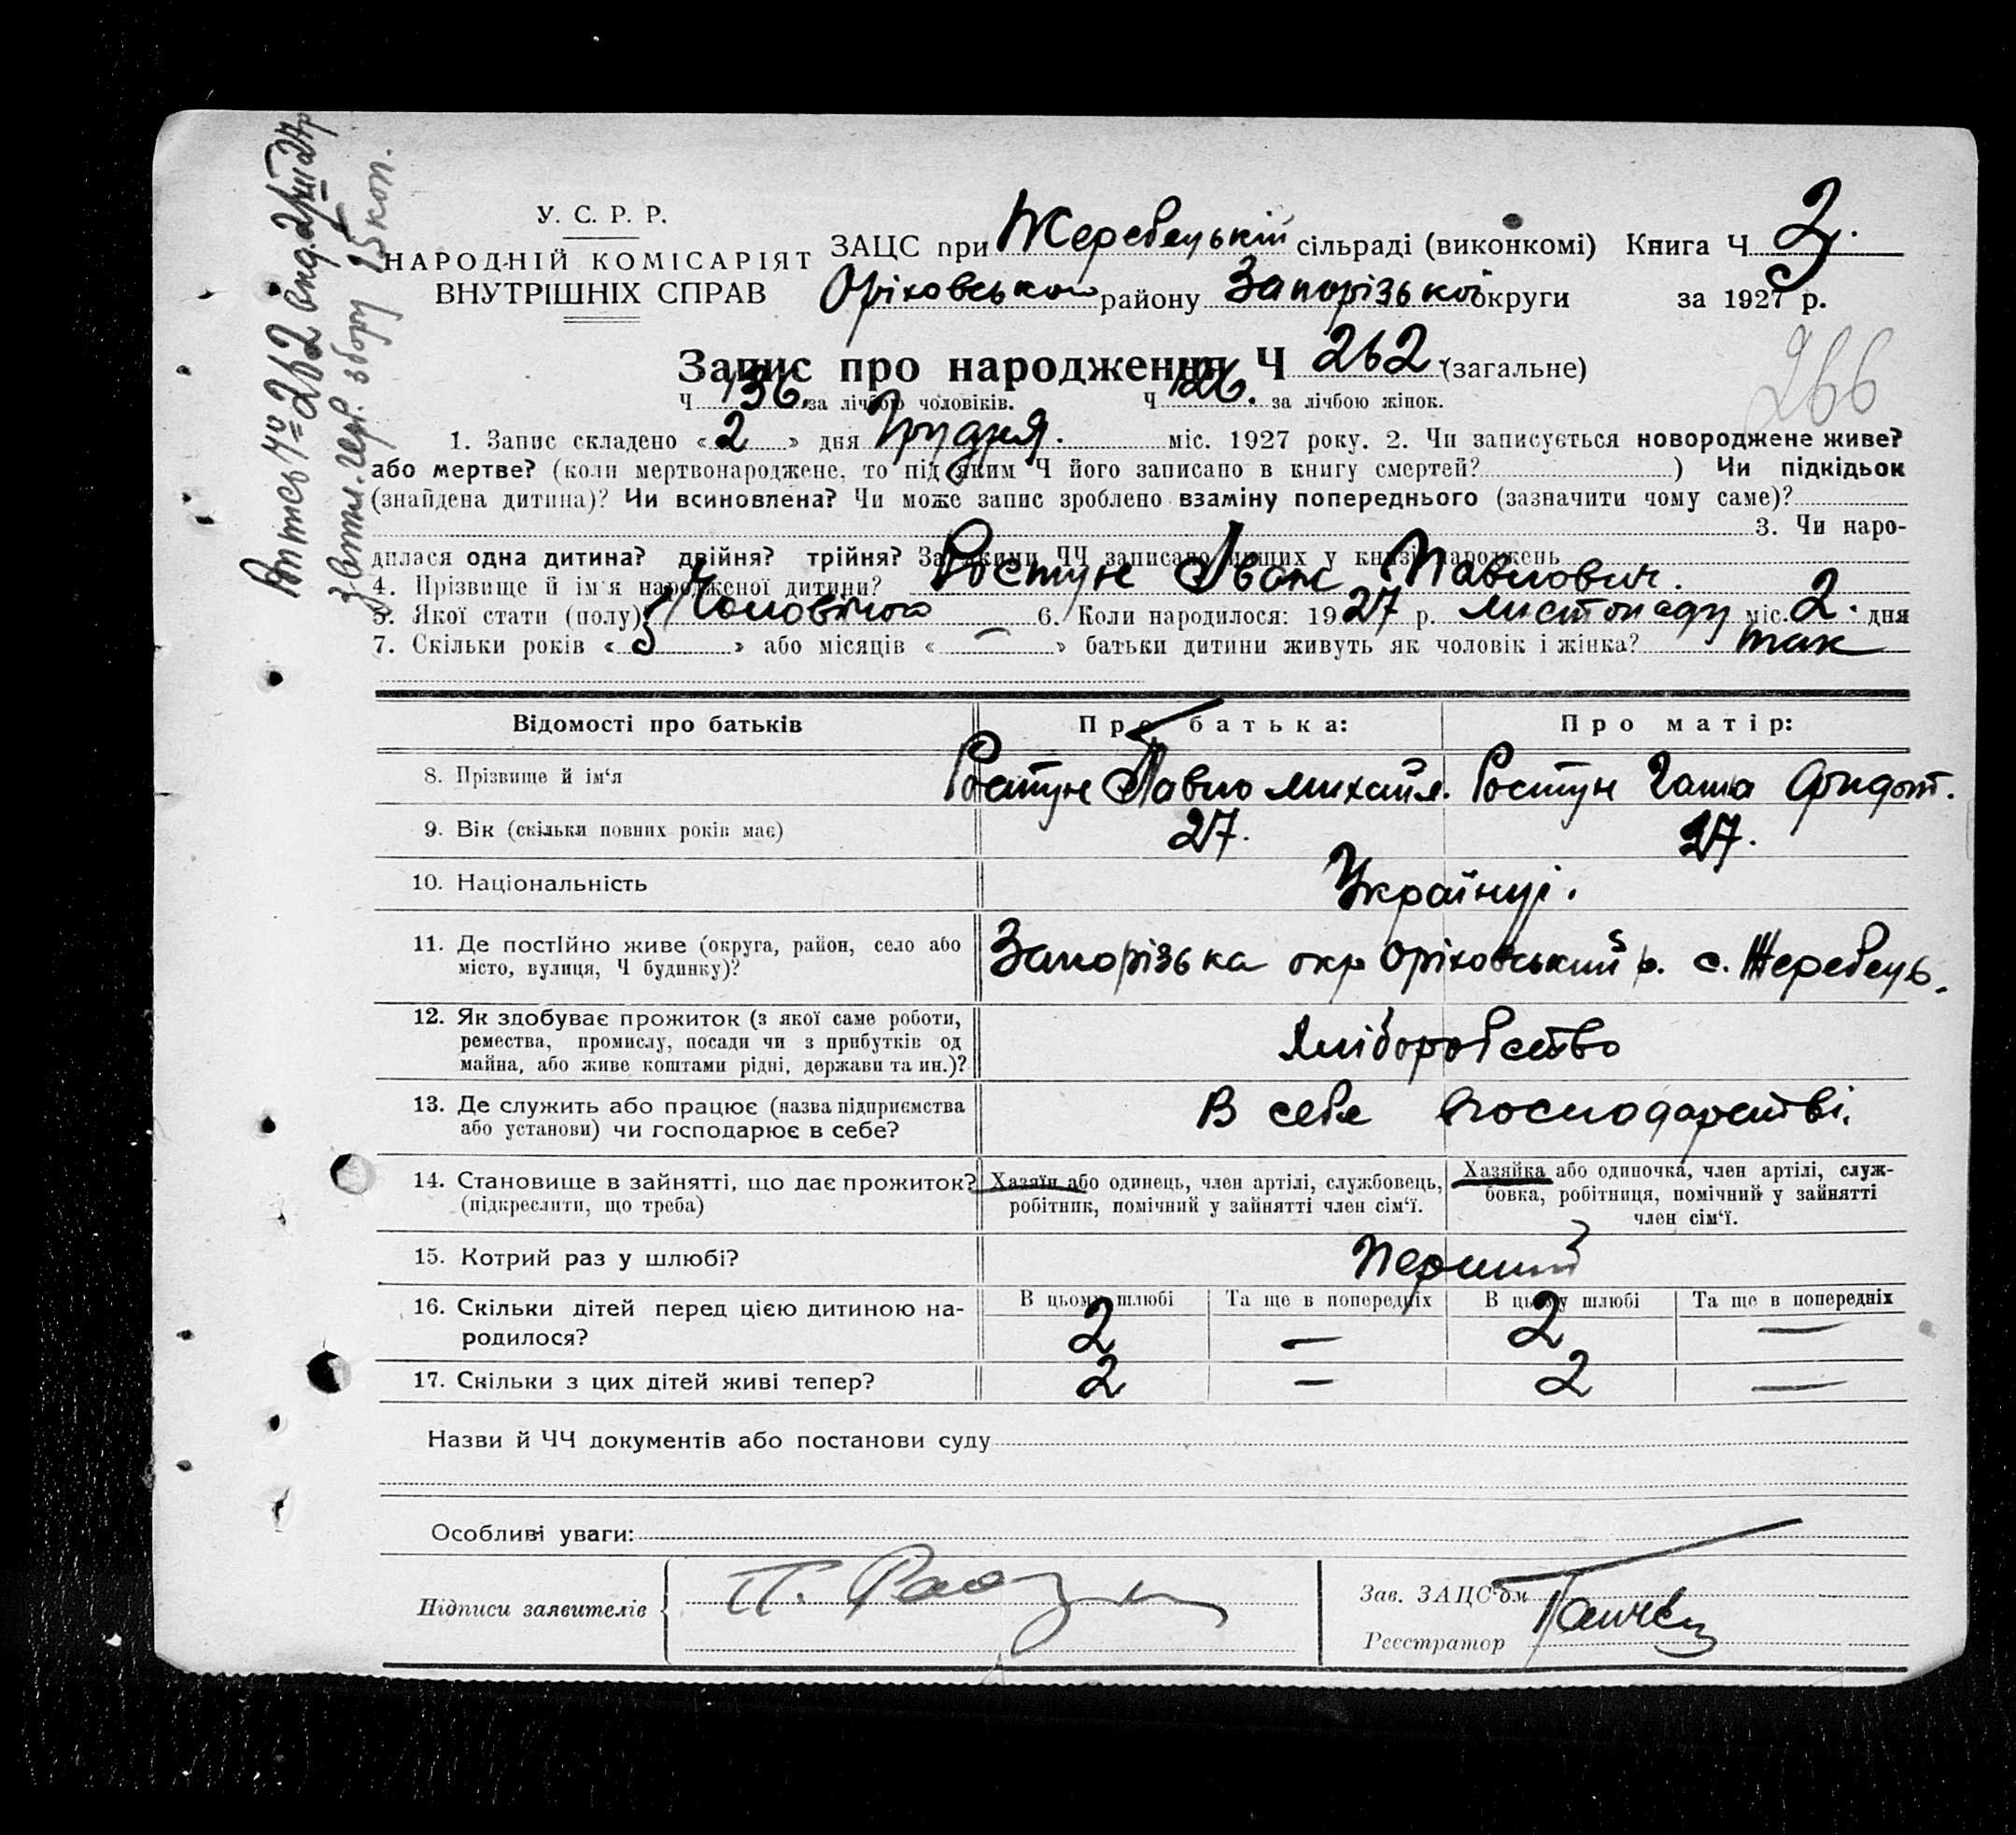 У. С. Р. Р.
НАРОДНІЙ КОМІСАРІЯТ
ВНУТРІШНІХ СПРАВ
ЗАЦС при Жеребецькій сільраді (виконкомі) Книга Ч 2.
Оріховського району Запорізької округи за 1927 р.
Запис про народження Ч 262 (загальне)
266
Ч 136. за лічбою чоловіків. Ч 126. за лічбою жінок.
1. Запис складено «2» дня Грудня. міс. 1927 року. 2. Чи записується новороджене живе?
або мертве? (коли мертвонароджене, то під яким Ч його записано в книгу смертей? ) Чи підкідьок
(знайдена дитина)? Чи всиновлена? Чи може запис зроблено взаміну попереднього (зазначити чому саме)?
3. Чи наро-
дилася одна дитина? двійня? трійня? За якими ЧЧ записано инших у книзі народжень
4. Прізвище й ім'я народженої дитини? Ростун Іван Павлович.
5. Якої стати (полу)? Чоловічого 6. Коли народилося: 1927 р. листопаду міс. 2. дня
7. Скільки років « 5 » або місяців « — » батьки дитини живуть як чоловік і жінка? так
Відомості про батьків Про батька: Про матір:
8. Прізвище й ім'я Ростун Павло Михайл. Ростун Гаша Фидот.
9. Вік (скільки повних років має) 27. 27.
10. Національність Українці.
11. Де постійно живе (округа, район, село або
місто, вулиця, Ч будинку)? Запорізька окр Оріховський р. с. Жеребець.
12. Як здобуває прожиток (з якої саме роботи,
ремества, промислу, посади чи з прибутків од
майна, або живе коштами рідні, держави та ин.)? Хліборобство
13. Де служить або працює (назва підприємства
або установи) чи господарює в себе? В себе господарстві.
14. Становище в зайнятті, що дає прожиток?
(підкреслити, що треба)
Хазяїн або одинець, член артілі, службовець,
робітник, помічний у зайнятті член сім'ї.
Хазяйка або одиночка, член артілі, служ-
бовка, робітниця, помічний у зайнятті
член сім'ї.
15. Котрий раз у шлюбі? Перший
16. Скільки дітей перед цією дитиною на-
родилося?
В цьому шлюбі Та ще в попередніх В цьому шлюбі Та ще в попередніх
2 — 2 —
17. Скільки з цих дітей живі тепер? 2 — 2 —
Назви й ЧЧ документів або постанови суду
Особливі уваги:
Підписи заявителів П.
Зав. ЗАЦС'ом
Реєстратор
262
збору 25 коп.